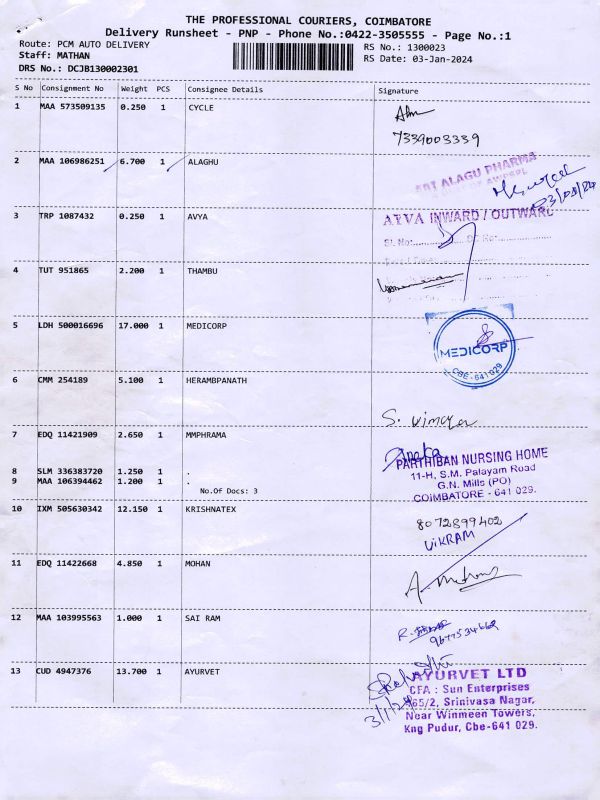 THE PROFESSIONAL COURIERS, COIMBATORE
Delivery Runsheet - PNP - Phone No.:0422-3505555 - Page No.:1
Route: PCM AUTO DELIVERY RS No.: 1300023
Staff: MATHAN RS Date: 03-Jan-2024
DRS No.: DCJB130002301
S No Consignment No Weight PCS Consignee Details Signature
1 MAA 573509135 0.250 1 CYCLE
7339003339
2 MAA 106986251 6.700 1 ALAGHU
SRI ALAGU PHARMA
3 TRP 1087432 0.250 1 AVYA
AYVA INWARD / OUTWARD
Sl. No:
4 TUT 951865 2.200 1 THAMBU
5 LDH 500016696 17.000 1 MEDICORP
MEDICORP
CBE - 641 029
6 CMM 254189 5.100 1 HERAMBPANATH
S. Vimala
7 EDQ 11421909 2.650 1 MMPHRAMA
PARTHIBAN NURSING HOME
11-H, S.M. Palayam Road
G.N. Mills (PO)
COIMBATORE - 641 029.
8 SLM 336383720 1.250 1 .
9 MAA 106394462 1.200 1 .
No.Of Docs: 3
10 IXM 505630342 12.150 1 KRISHNATEX
8072899402
VIKRAM
11 EDQ 11422668 4.850 1 MOHAN
12 MAA 103995563 1.000 1 SAI RAM
9677534668
13 CUD 4947376 13.700 1 AYURVET
3/1/24
AYURVET LTD
CFA : Sun Enterprises
465/2, Srinivasa Nagar,
Near Winmeen Towers,
Kng Pudur, Cbe-641 029.